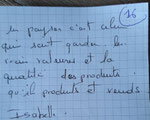 16
un paysan c'est celui
qui sait garder les
vrais valeurs et la
qualité des produits
qu'il produits et vends
Isabelle.